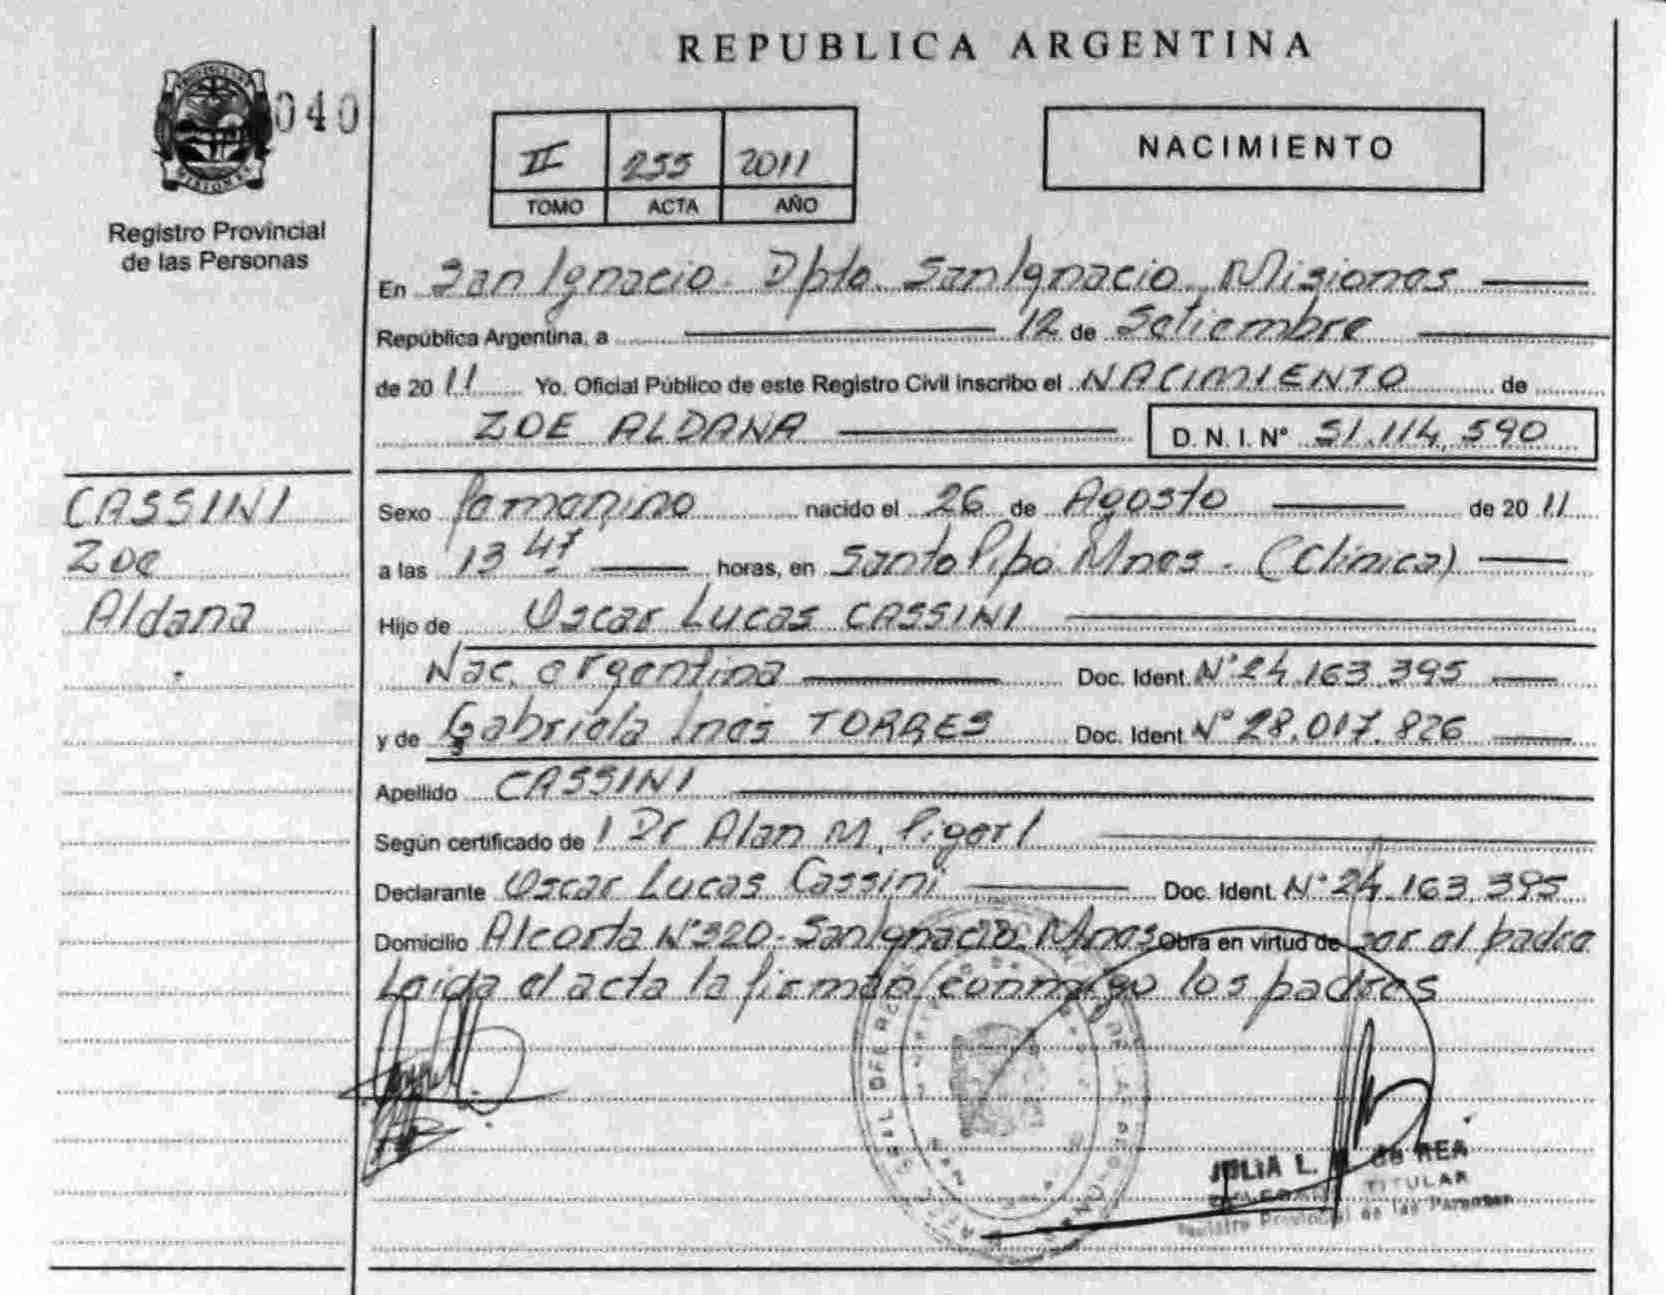 REPUBLICA ARGENTINA
040
PROVINCIA DE
MISIONES
Registro Provincial
de las Personas
II 255 2011
TOMO ACTA AÑO
NACIMIENTO
En San Ignacio - Dpto. San Ignacio, Misiones
República Argentina, a 12 de Setiembre
de 2011 Yo, Oficial Público de este Registro Civil inscribo el NACIMIENTO de
ZOE ALDANA D. N. I. N° 51.114.590
CASSINI
Zoe
Aldana
Sexo femenino nacido el 26 de Agosto de 2011
a las 13 47 horas, en Santo Pipó Mnes - (Clínica)
Hijo de Oscar Lucas CASSINI
Nac. argentina Doc. Ident. N° 24.163.395
y de Gabriela Ines TORRES Doc. Ident N° 28.017.826
Apellido CASSINI
Según certificado de 1 Dr Alan M.
Declarante Oscar Lucas Cassini Doc. Ident. N° 24.163.395
Domicilio Alcorta N°320 - San Ignacio Mnes Obra en virtud de ser el padre
Leida el acta la firman conmigo los padres
JULIA L. de REA
TITULAR
Registro Provincial de las Personas